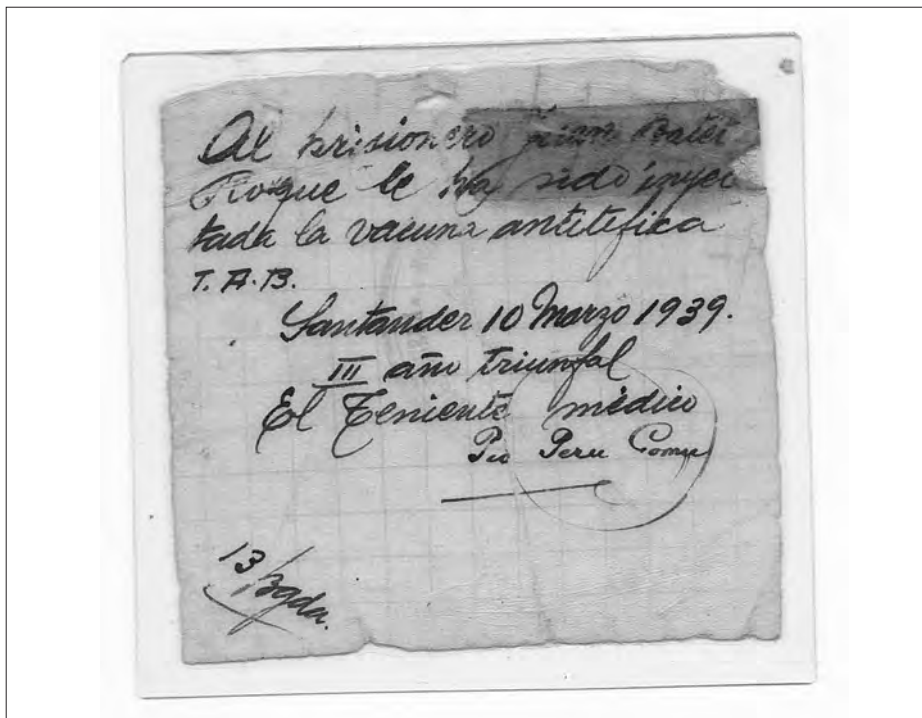 Al prisionero Juan
Roque le ha sido inyec
tada la vacuna antitifica
T.A.B.
Santander 10 Marzo 1939.
III año triunfal
El Teniente médico
Pio
13/Bgda.